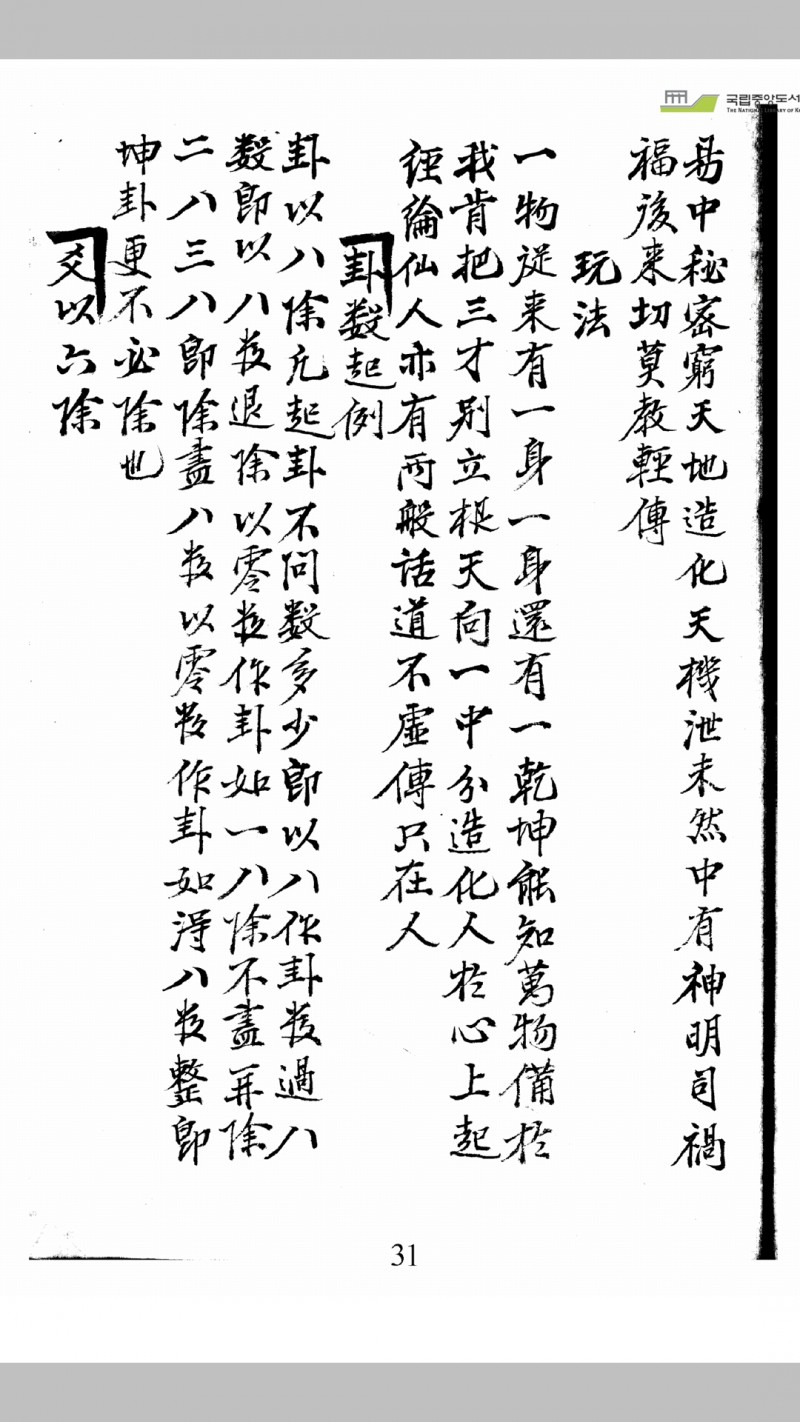 국립중앙도서
THE NATIONAL LIBRARY OF KO
易中秘密窮天地造化天機泄未然中有神明司禍
福後来切莫教輕傳
玩法
一物從来有一身一身還有一乾坤能知萬物備於
我肯把三才别立根天向一中分造化人於心上起
經綸仙人亦有兩般話道不虛傳只在人
卦数起例
卦以八除凡起卦不问数多少即以八作卦数過八
数即以八数退除以零数作卦如一八除不盡再除
二八三八即除盡八数以零数作卦如得八数整即
坤卦更不必除也
爻以六除
31